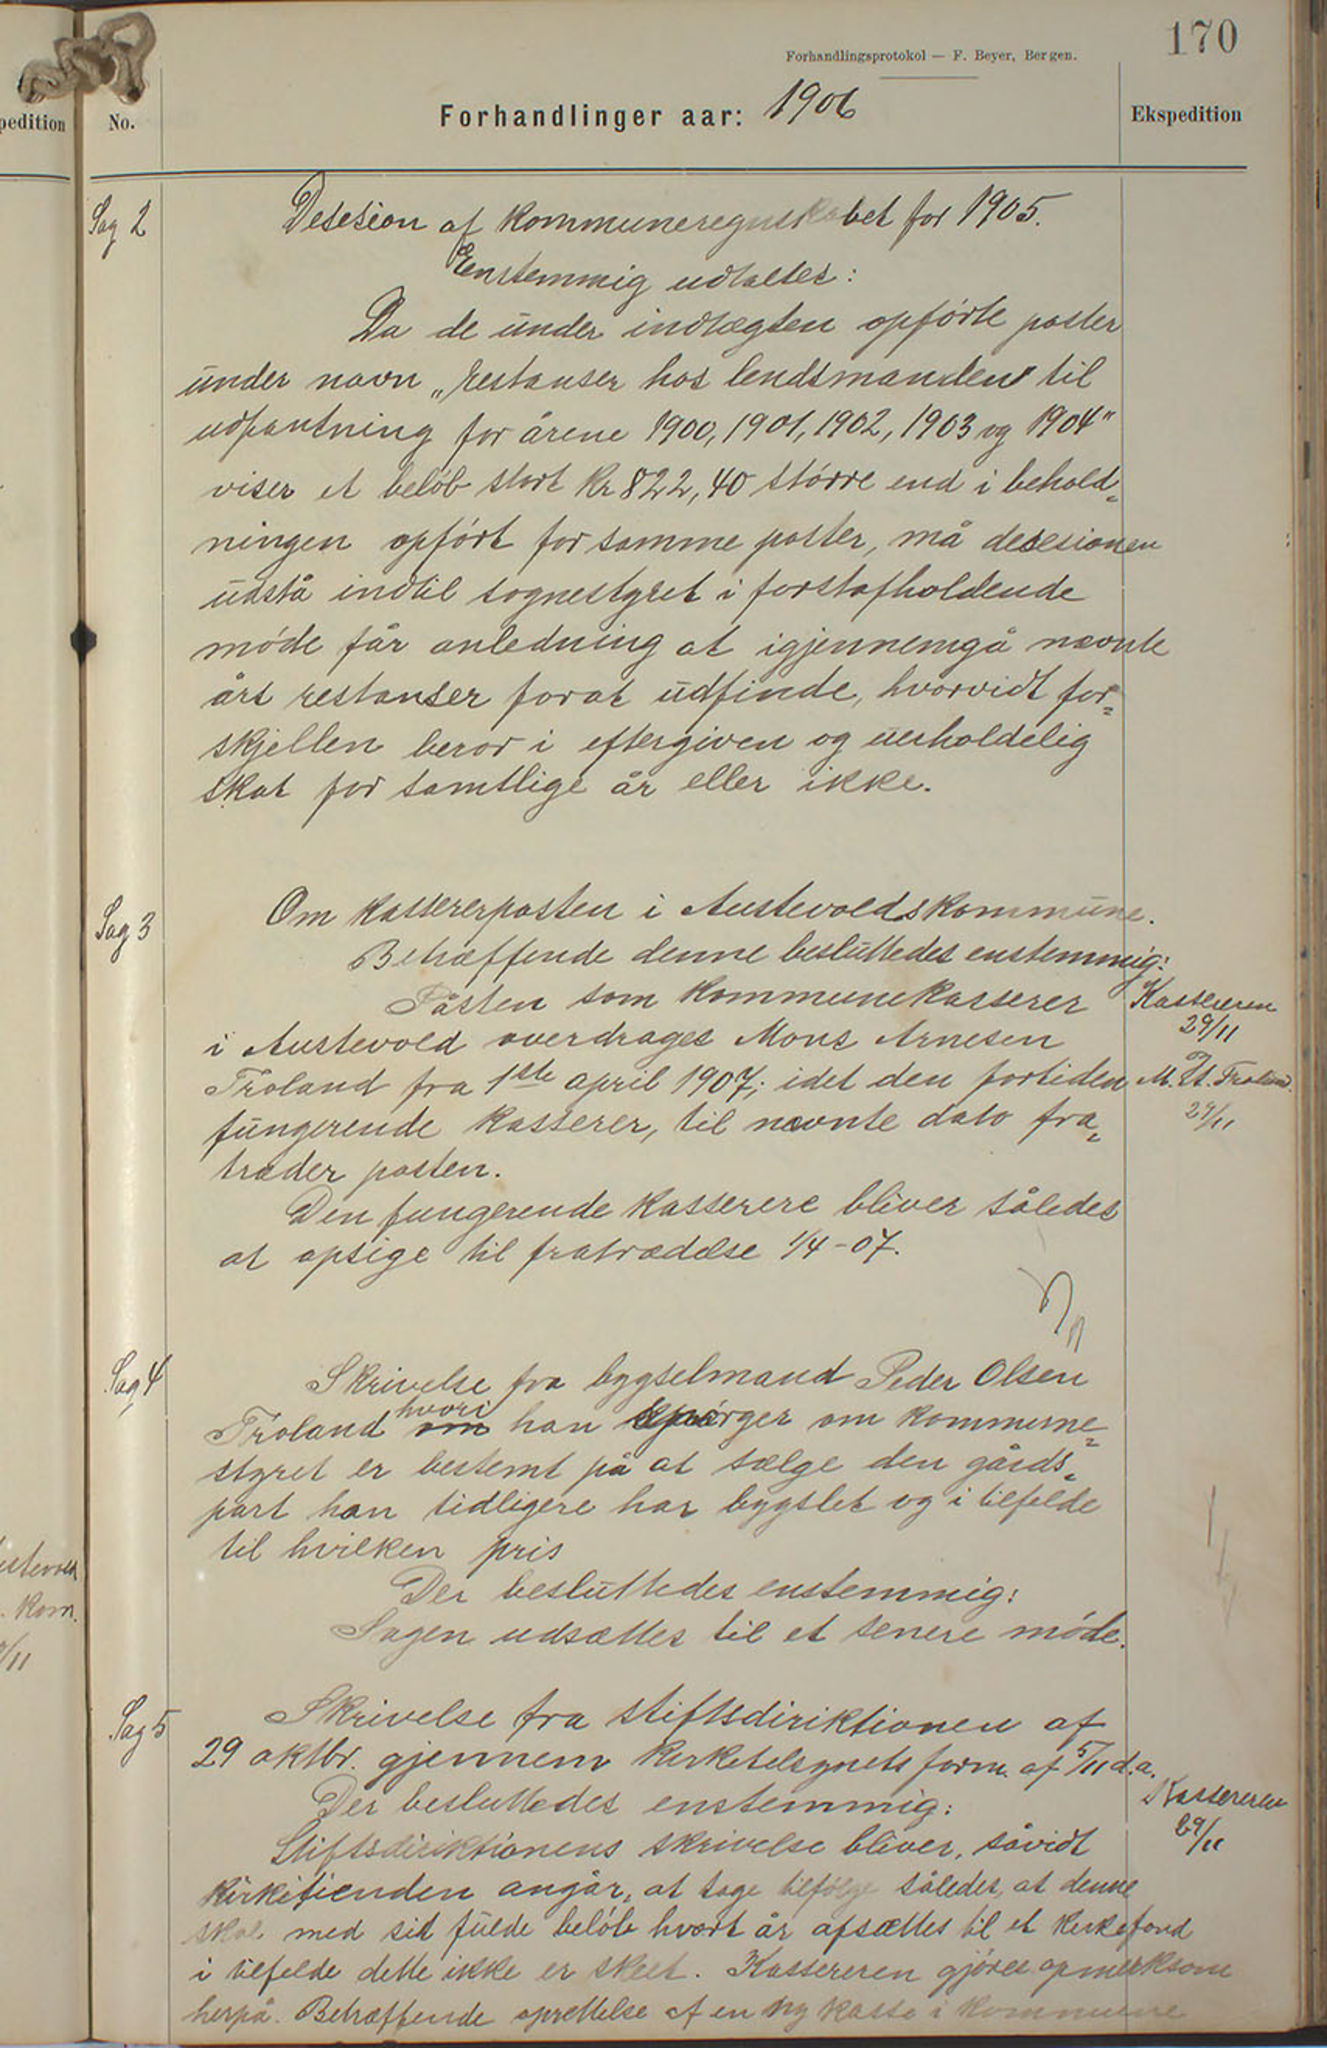 170
Forhandlingsprotokol — F. Beyer, Bergen.
pedition
No.
Forhandlinger aar: 1906
Ekspedition
Sag 2
Desesion af kommuneregnskabet for 1905.
Enstemmig udtaltes:
Da de under indtægten opførte poster
under navn „restanser hos lendsmanden til
udpantning for årene 1900, 1901, 1902, 1903 og 1904"
viser et beløb stort kr 822,40 større end i behold=
ningen opført for samme poster, må desesionen
udstå indtil sognestyret i førstafholdende
møde får anledning at igjennemgå nævnte
års restanser forat udfinde, hvorvidt for=
skjellen beror i eftergiven og uerholdelig
skat for samtlige år eller ikke.
Sag 3
Om kassererposten i Austevolds kommune.
Betræffende denne besluttedes enstemmig:
Pósten som kommunekasserer
Kassereren
29/11
i Austevold overdrages Mons Arnesen
Troland fra 1ste april 1907; idet den fortiden
M. A. Troland.
29/11
fungerende kasserer, til nævnte dato fra=
træder posten.
Den fungerende kasserere bliver således
at opsige til fratrædelse 1/4-07.
Sag 4
Skrivelse fra bygselmand Peder Olsen
Troland om hvori han spørger om kommune=
styret er bestemt på at sælge den gårds=
part han tidligere har bygslet og i tilfelde
til hvilken pris
Der besluttedes enstemmig:
Sagen udsættes til et senere møde.
ustevold
. kom.
/11
Sag 5
Skrivelse fra stiftsdiriktionen af
29 oktbr. gjennem kirketilsynets form. af 5/11 d.a.
Der besluttedes enstemmig:
Kassereren
29/11
Stiftsdiriktionens skrivelse bliver, såvidt
kirketienden angår, at tage tilfølge således, at denne
skal med sit fulde beløb hvært år afsættes til et kirkefond
i tilfelde dette ikke er skeet. Kassereren gjøres opmerksom
herpå. Betræffende oprettelse af en ny kasse i kommune